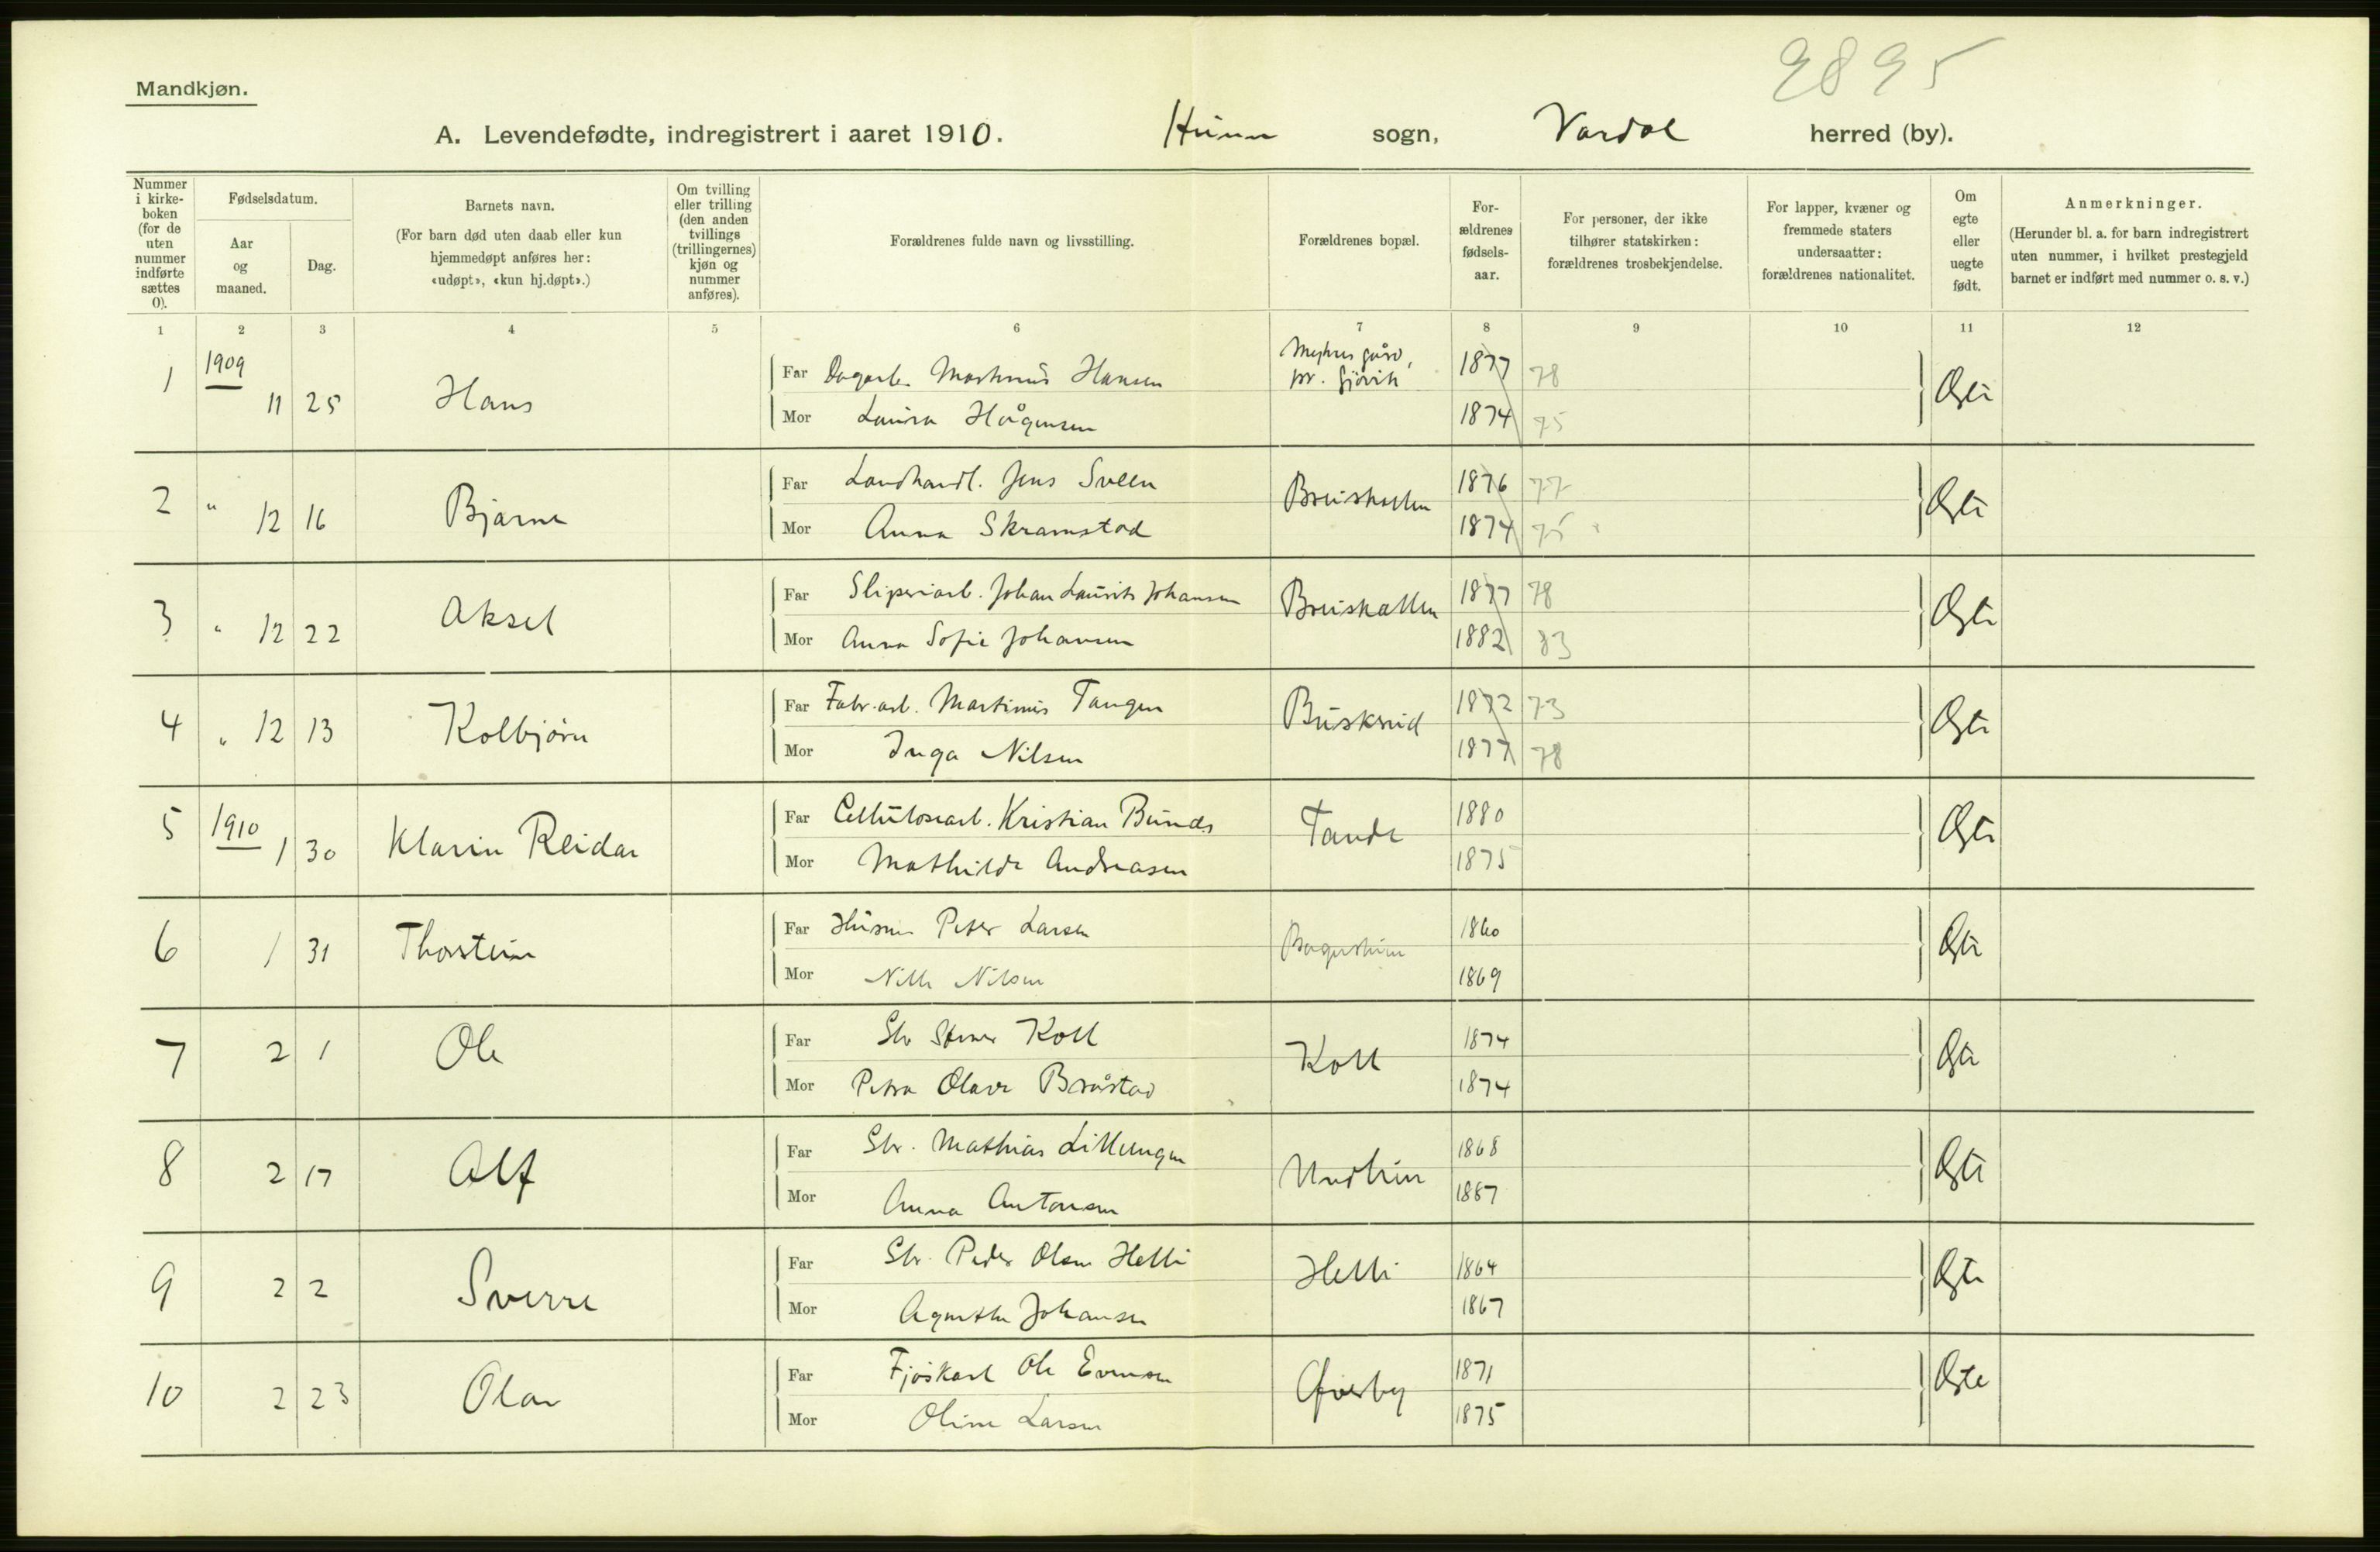 9895
Mandkjøn.
A. Levendefødte, indregistrert i aaret 1910. Hunn sogn, Vardal herred (by).
Nummer i kirke-boken (for de uten nummer indførte sættes 0).
Fødselsdatum.
Aar og maaned.
Dag.
Barnets navn.
(For barn død uten daab eller kun hjemmedøpt anføres her: «udøpt», «kun hj.døpt».)
Om tvilling eller trilling (den anden tvillings (trillingernes) kjøn og nummer anføres).
Forældrenes fulde navn og livsstilling.
Forældrenes bopæl.
For-ældrenes fødsels-aar.
For personer, der ikke tilhører statskirken: forældrenes trosbekjendelse.
For lapper, kvæner og fremmede staters undersaatter: forældrenes nationalitet.
Om egte eller uegte født.
Anmerkninger.
(Herunder bl. a. for barn indregistrert uten nummer, i hvilket prestegjeld barnet er indført med nummer o. s. v.)
1 2 3 4 5 6 7 8 9 10 11 12
1 1909 11 25 Hans Far Dagarb. Martinus Hansen pr. Gjøvik 1877 78 Ægte
Mor Laura Hågensen 1874 75
2 " 12 16 Bjarne Far Landhandl. Jens Sveen Breiskallen 1876 77 Ægte
Mor Anna Skramstad 1874 75
3 " 12 22 Aksel Far Sliperiarb. Johan Laurits Johansen Breiskallen 1877 78 Ægte
Mor Anna Sofie Johansen 1882 83
4 " 12 13 Kolbjørn Far Fabr.arb. Martinius Tangen Buskrud 1872 73 Ægte
Mor Inga Nilsen 1877 78
5 1910 1 30 Klarin Reidar Far Cellulosearb. Kristian Bunds Tande 1880 Ægte
Mor Mathilde Andreasen 1875
6 1 31 Thorstein Far Husm. Peter Larsen 1860 Ægte
Mor Nille Nilsen 1869
7 2 1 Ole Far Slv Steiner Koll Koll 1874 Ægte
Mor Petra Olave Bråstad 1874
8 2 17 Alf Far Slv. Mathias Lilleengen 1868 Ægte
Mor Anna Antonsen 1867
9 2 2 Sverre Far Slv. Peder Olsen Helli Helli 1864 Ægte
Mor Agnethe Johansen 1867
10 2 23 Olav Far Fjøskarl Ole Evensen Øverby 1871 Ægte
Mor Oline Larsen 1875